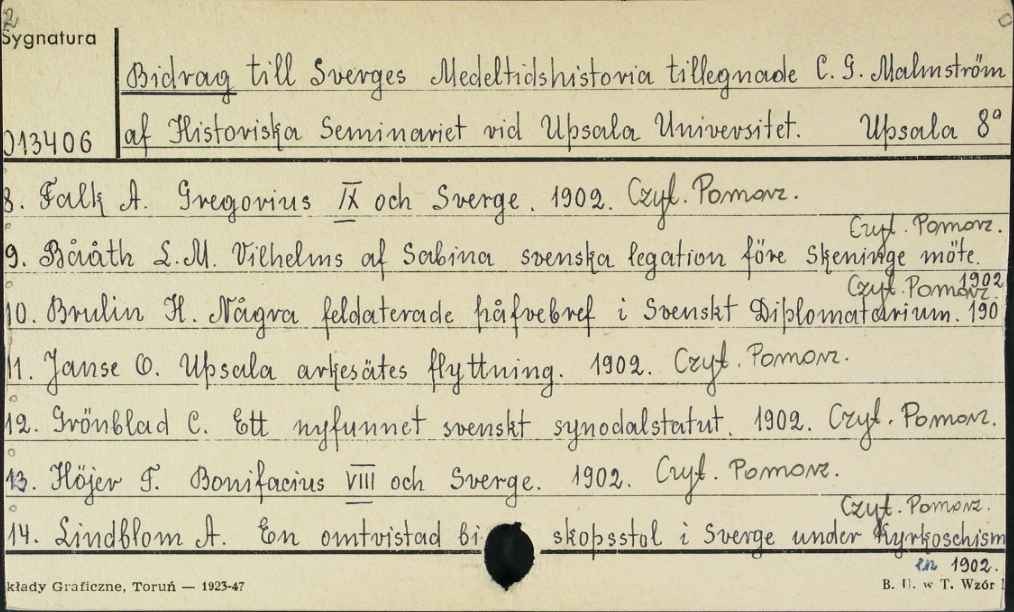 2
Sygnatura
Bidrag till Sverges Medeltidshistoria tillegnade C. G. Malmström
013406 af Historiska Seminariet vid Upsala Universitet. Upsala 8°
8. Falk A. Gregorius IX och Sverge. 1902. Czyt. Pomorz.
Czyt. Pomorz.
9. Bååth L.M. Vilhelms af Sabina svenska legation före Skeninge möte.
1902
Czyt. Pomorz.
10. Brulin H. Några feldaterade påfvebref i Svenskt Diplomatarium. 190
11. Janse O. Upsala arkesätes flyttning. 1902. Czyt. Pomorz.
12. Grönblad C. Ett nyfunnet svenskt synodalstatut. 1902. Czyt. Pomorz.
13. Höjer T. Bonifacius VIII och Sverge. 1902. Czyt. Pomorz.
Czyt. Pomorz.
14. Lindblom A. En omtvistad bi skopsstol i Sverge under Kyrkoschism
en 1902.
kłady Graficzne, Toruń — 1923-47
B. U. w T. Wzór 1